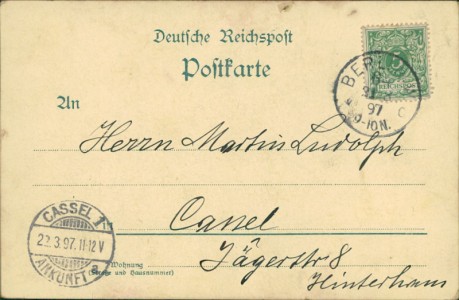 Deutsche Reichspost
Postkarte
BERLIN
21 3
97
9-10N.
C
REICHSPOST
An
Herrn Martin Ludolph
Cassel
Jägerstr 8
Hinterhaus
Wohnung
(Straße und Hausnummer)
CASSEL 1
22.3.97.11-12V
ANKUNFT